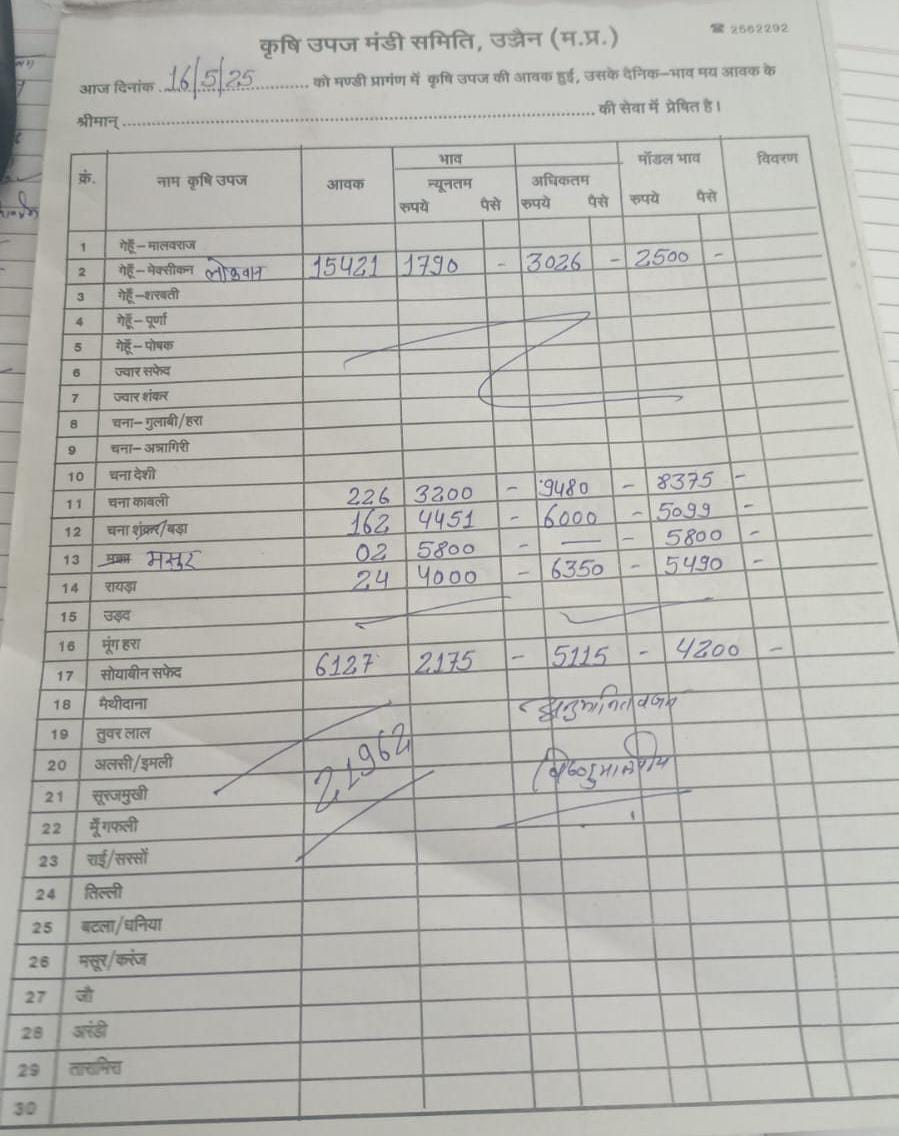 कृषि उपज मंडी समिति, उज्जैन (म.प्र.) ☎ 2562292
आज दिनांक 16/5/25 को मण्डी प्रागंण में कृषि उपज की आवक हुई, उसके दैनिक-भाव मय आवक के
श्रीमान् की सेवा में प्रेषित है।
भाव मॉडल भाव विवरण
क्रं. नाम कृषि उपज आवक न्यूनतम अधिकतम
रुपये पैसे रुपये पैसे रुपये पैसे
1 गेहूँ-मालवराज
2 गेहूँ-मेक्सीकन लोकवान 15421 1790 - 3026 - 2500 -
3 गेहूँ-शरबती
4 गेहूँ-पूर्णा
5 गेहूँ-पोषक
6 ज्वार सफेद
7 ज्वार शंकर
8 चना-गुलाबी/हरा
9 चना-अन्नागिरी
10 चना देशी
11 चना काबली 226 3200 - 9480 - 8375 -
12 चना शंकर/बड़ा 162 4451 - 6000 - 5099 -
13 मक्का मसुर 02 5800 - — - 5800 -
14 रायड़ा 24 4000 - 6350 - 5490 -
15 उड़द
16 मूंग हरा
17 सोयाबीन सफेद 6127 2175 - 5115 - 4200 -
18 मैथीदाना अनुमानित वजन
19 तुवर लाल
20 अलसी/इमली 21962
21 सूरजमुखी
22 मूँगफली
23 राई/सरसों
24 तिल्ली
25 बटला/धनिया
26 मसूर/करंज
27 जौ
28 अरंडी
29 तारामिरा
30